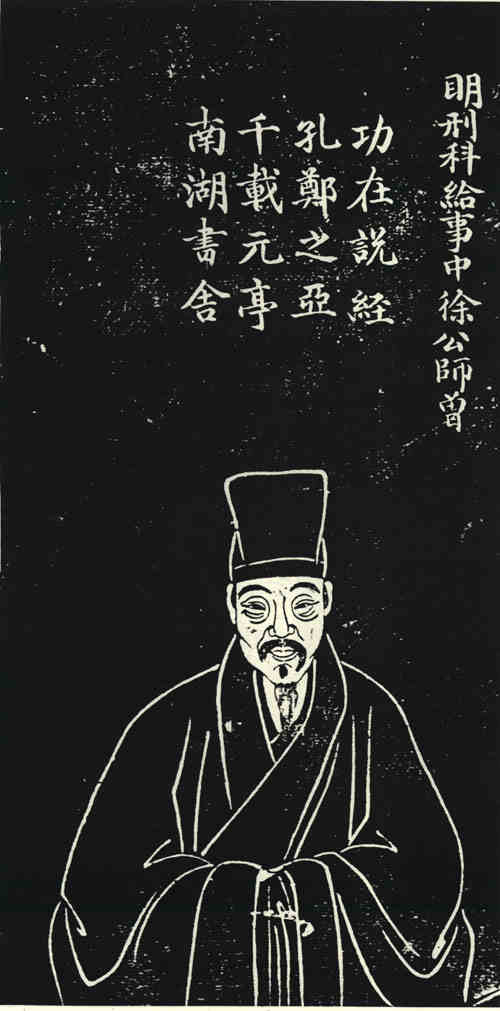 明刑科給事中徐公師曾
功在說經
孔鄭之亞
千載元亭
南湖書舍